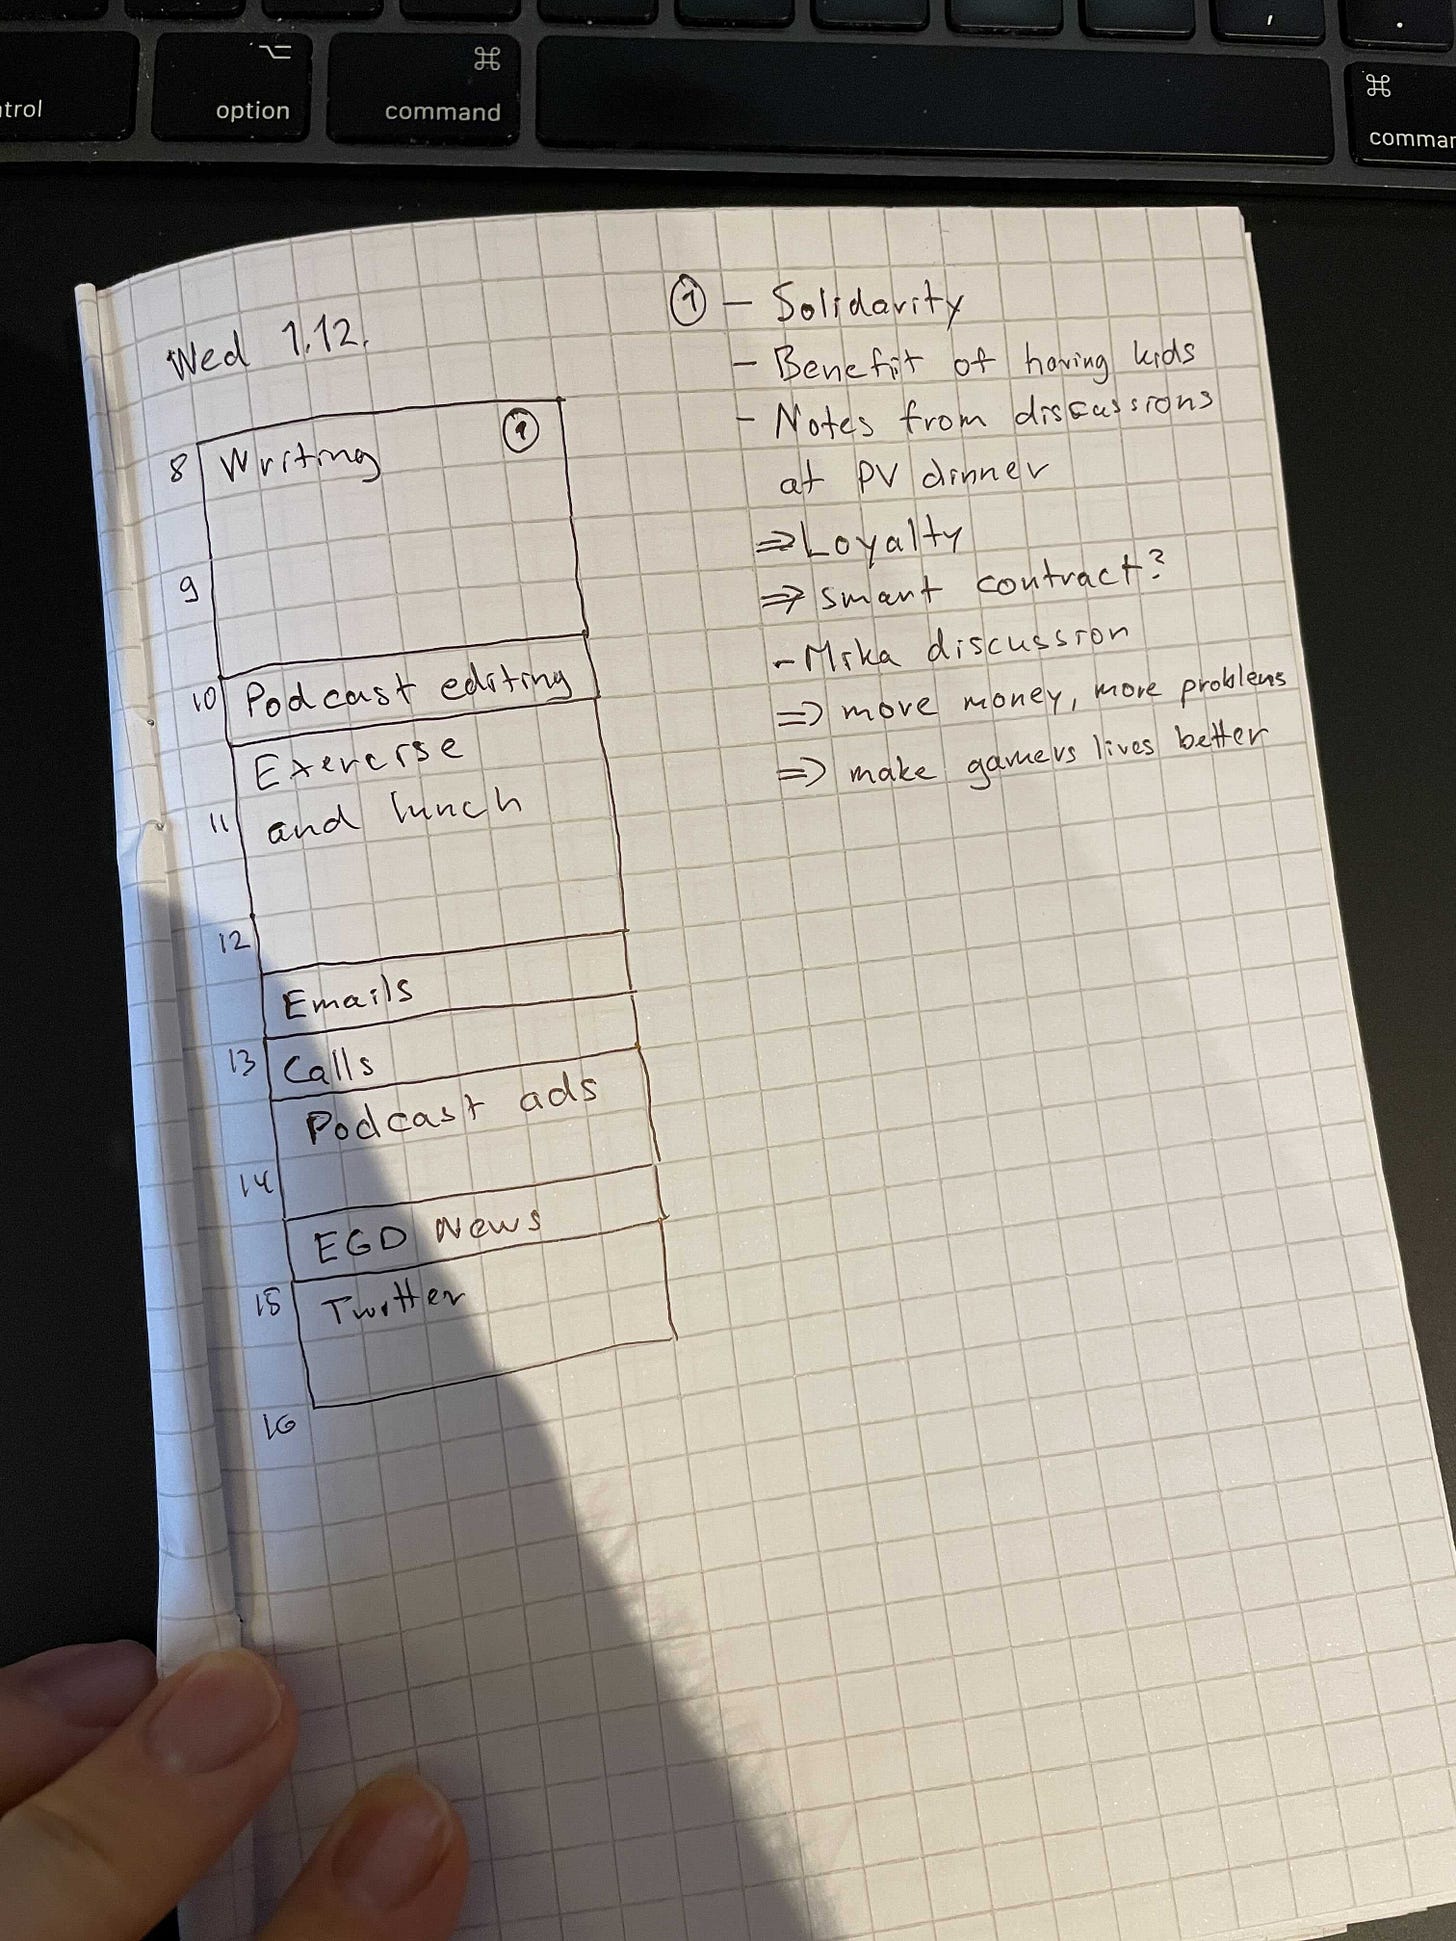 ntrol
option
command
,
.
comman
Wed 1.12.
8 Writing 1
9
10 Podcast editing
Exercise
11 and lunch
12
Emails
13 Calls
Podcast ads
14
EGD News
15 Twitter
16
1 - Solidarity
- Benefit of having kids
- Notes from discussions
at PV dinner
⇒ Loyalty
⇒ smart contract?
- Mika discussion
⇒ more money, more problems
⇒ make gamers lives better